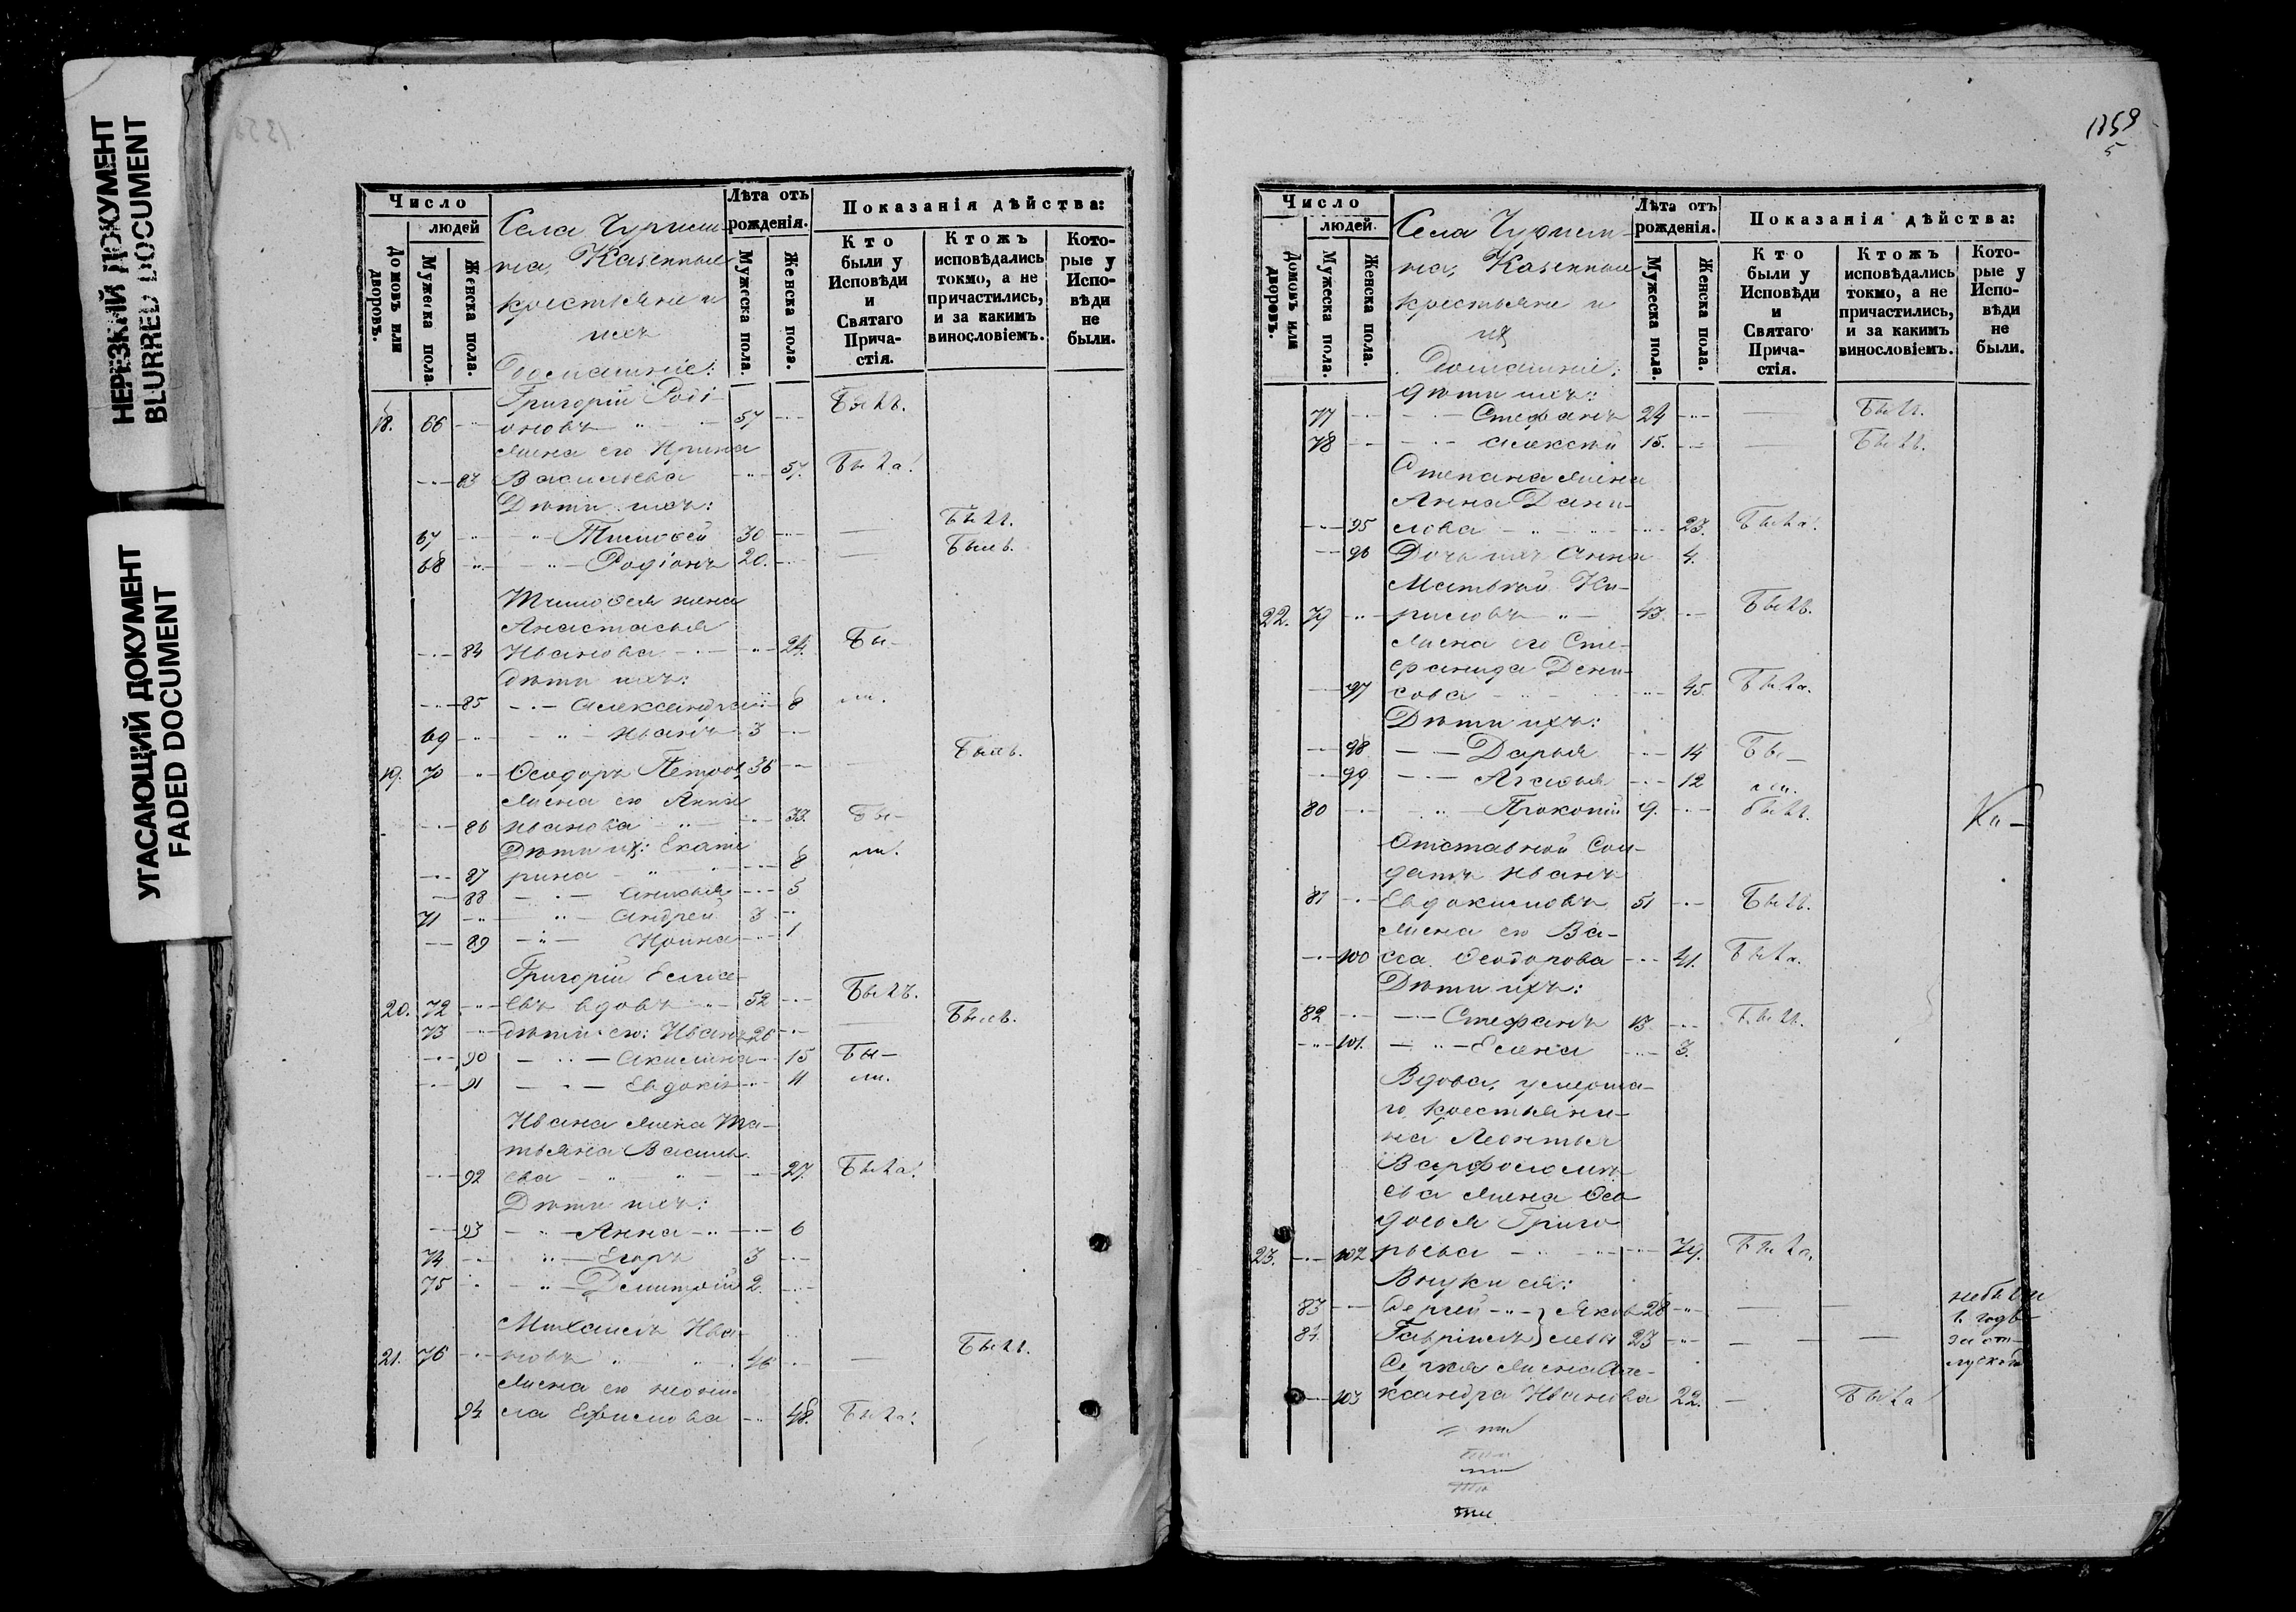 НЕРЕЗКИЙ ДОКУМЕНТ
BLURRED DOCUMENT
УГАСАЮЩИЙ ДОКУМЕНТ
FADED DOCUMENT
Число
людей
Домовъ или дворовъ.
Мужеска пола.
Женска пола.
Села
Казенные
крестьяне и
ихъ
Домашніе:
Лѣта отъ
рожденія.
Мужеска пола.
Женска пола.
Показанія дѣйства:
Кто
были у
Исповѣди
и
Святаго
Прича-
стія.
Ктожъ
исповѣдались
токмо, а не
причастились,
и за какимъ
винословіемъ.
Кото-
рые у
Испо-
вѣди
не
были.
Григорій Роді-
18. 66 оновъ 57 Былъ.
Жена его Ирина
83 Васильева 57. Была.
Дѣти ихъ:
67 Тимофей 30 Былъ.
68 Родіонъ 20. Былъ.
Тимофея жена
Анастасья
84 Иванова 24. Бы-
дѣти ихъ:
85 Александра 8 ли.
69 Иванъ 3
19. 70 Ѳеодоръ Петров 36 Былъ.
Жена его Анна
86 Иванова 33. Бы-
Дѣти ихъ: Екате
87 рина 8 ли.
88 Анисья 5
71 Андрей 3
89 Ирина 1
Григорій Елисе-
20. 72 евъ вдовъ 52 Былъ.
73 дѣти его: Иванъ 26 Былъ.
90 Акилина 15 Бы-
91 Евдокія 11 ли.
Ивана жена Та-
тьяна Василь
92 ева 27. Была.
Дѣти ихъ:
93 Анна 6
74 Егоръ 3
75 Дмитрій 2.
Михаилъ Ива-
21. 76 новъ 46 Былъ.
Жена его
94 Ефимова 48. Была.
1359
5
Число
людей.
Домовъ или дворовъ.
Мужеска пола.
Женска пола.
Села
Казенные
крестьяне и
их
Домашніе:
Лѣта отъ
рожденія.
Мужеска пола.
Женска пола.
Показанія дѣйства:
Кто
были у
Исповѣди
и
Святаго
Прича-
стія.
Ктожъ
исповѣдались
токмо, а не
причастились,
и за какимъ
винословіемъ.
Кото-
рые у
Испо-
вѣди
не
были.
дѣти ихъ:
77 Стефанъ 24 Былъ.
78 Алексѣй 15. Былъ.
Степана жена
Анна Дани-
95 лова 23. Была.
96 Дочь ихъ Анна 4.
Матвѣй Ки-
22. 79 риловъ 43. Былъ.
Жена его Сте-
фанида Дени-
97 сова 45. Была.
Дѣти ихъ:
98 Дарья 14 Бы-
99 Агафья 12 ли.
80 Прокопій 9. Былъ.
Ки-
Отставной Сол-
датъ Иванъ
81 Евдокимовъ 51 Былъ.
Жена его Ва-
100 сса Ѳеодорова 41. Была.
Дѣти ихъ:
82 Стефанъ 13. Былъ.
101. Елена 3.
Вдова, умерша-
го крестьяни-
на Леонтья
Варфоломѣ
ева жена Ѳео
досья Григо
23. 102 рьева 79. Была.
Внуки ея:
83 Сергей Яков 28 небыли
84. Гавріилъ левы 23 за от-
Сергея жена Але-
103 ксандра Иванова 22. Была